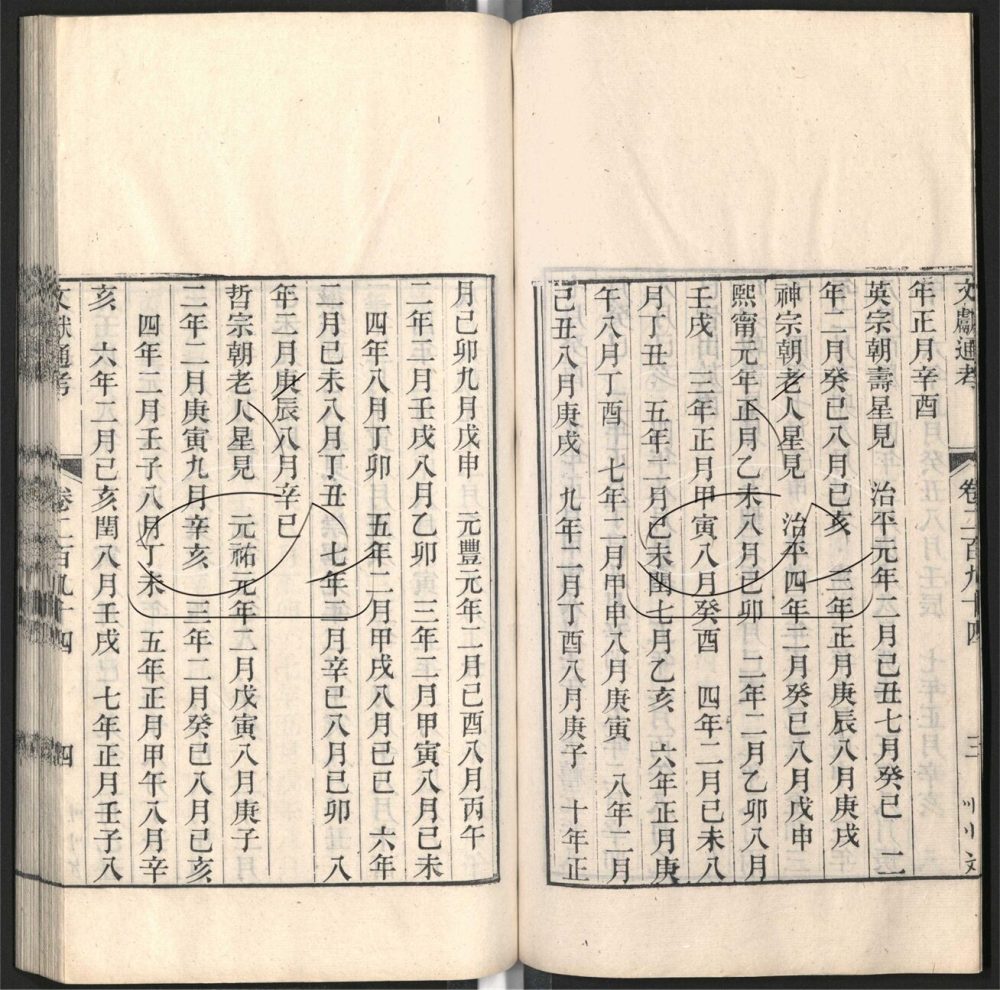 文獻通考 卷二百九十四 三
年正月辛酉
英宗朝壽星見 治平元年二月己丑七月癸巳 二
年二月癸巳八月己亥 三年正月庚辰八月庚戌
神宗朝老人星見 治平四年二月癸巳八月戊申
熙甯元年正月乙未八月己卯 二年二月乙卯八月
壬戌 三年正月甲寅八月癸酉 四年二月己未八
月丁丑 五年一月己未閏七月乙亥 六年正月庚
午八月丁酉 七年二月甲申八月庚寅 八年二月
己丑八月庚戌 九年二月丁酉八月庚子 十年正
月己卯九月戊申 元豐元年二月己酉八月丙午
二年二月壬戌八月乙卯 三年二月甲寅八月己未
四年八月丁卯 五年二月甲戌八月己巳 六年
二月己未八月丁丑 七年二月辛巳八月己卯 八
年二月庚辰八月辛巳
哲宗朝老人星見 元祐元年二月戊寅八月庚子
二年二月庚寅九月辛亥 三年二月癸巳八月己亥
四年二月壬子八月丁未 五年正月甲午八月辛
亥 六年二月己亥閏八月壬戌 七年正月壬子八
文獻通考 卷二百九十四 四